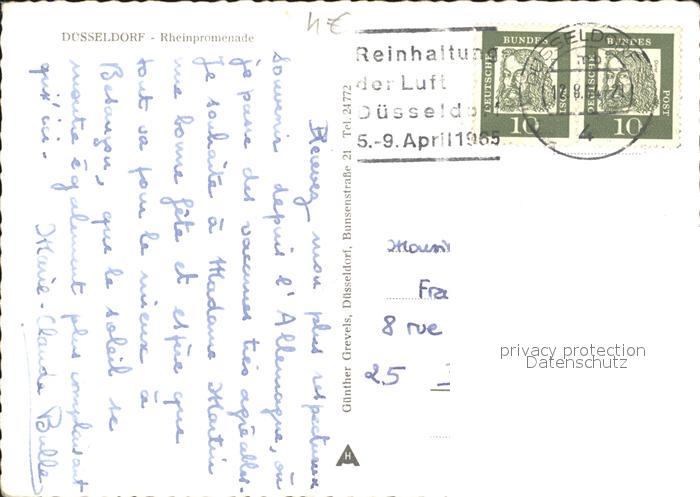 4€
DÜSSELDORF - Rheinpromenade
Recevez mon plus respectueux
souvenir depuis l'Allemagne, où
je passe des vacances très agréables.
Je souhaite à Madame Martin
une bonne fête et espère que
tout va pour le mieux à
Besançon, que le soleil se
montre également plus complaisant
qu'ici.
Marie-Claude Bulle
Günther Grevels, Düsseldorf, Bunsenstraße 21 Tel. 24772
Reinhaltung
der Luft
Düsseldo
5.-9. April 1965
DÜSSELDORF
4
DEUTSCHE BUNDES POST
10
DEUTSCHE BUNDES POST
10
Fra
8 rue
25
privacy protection
Datenschutz
H